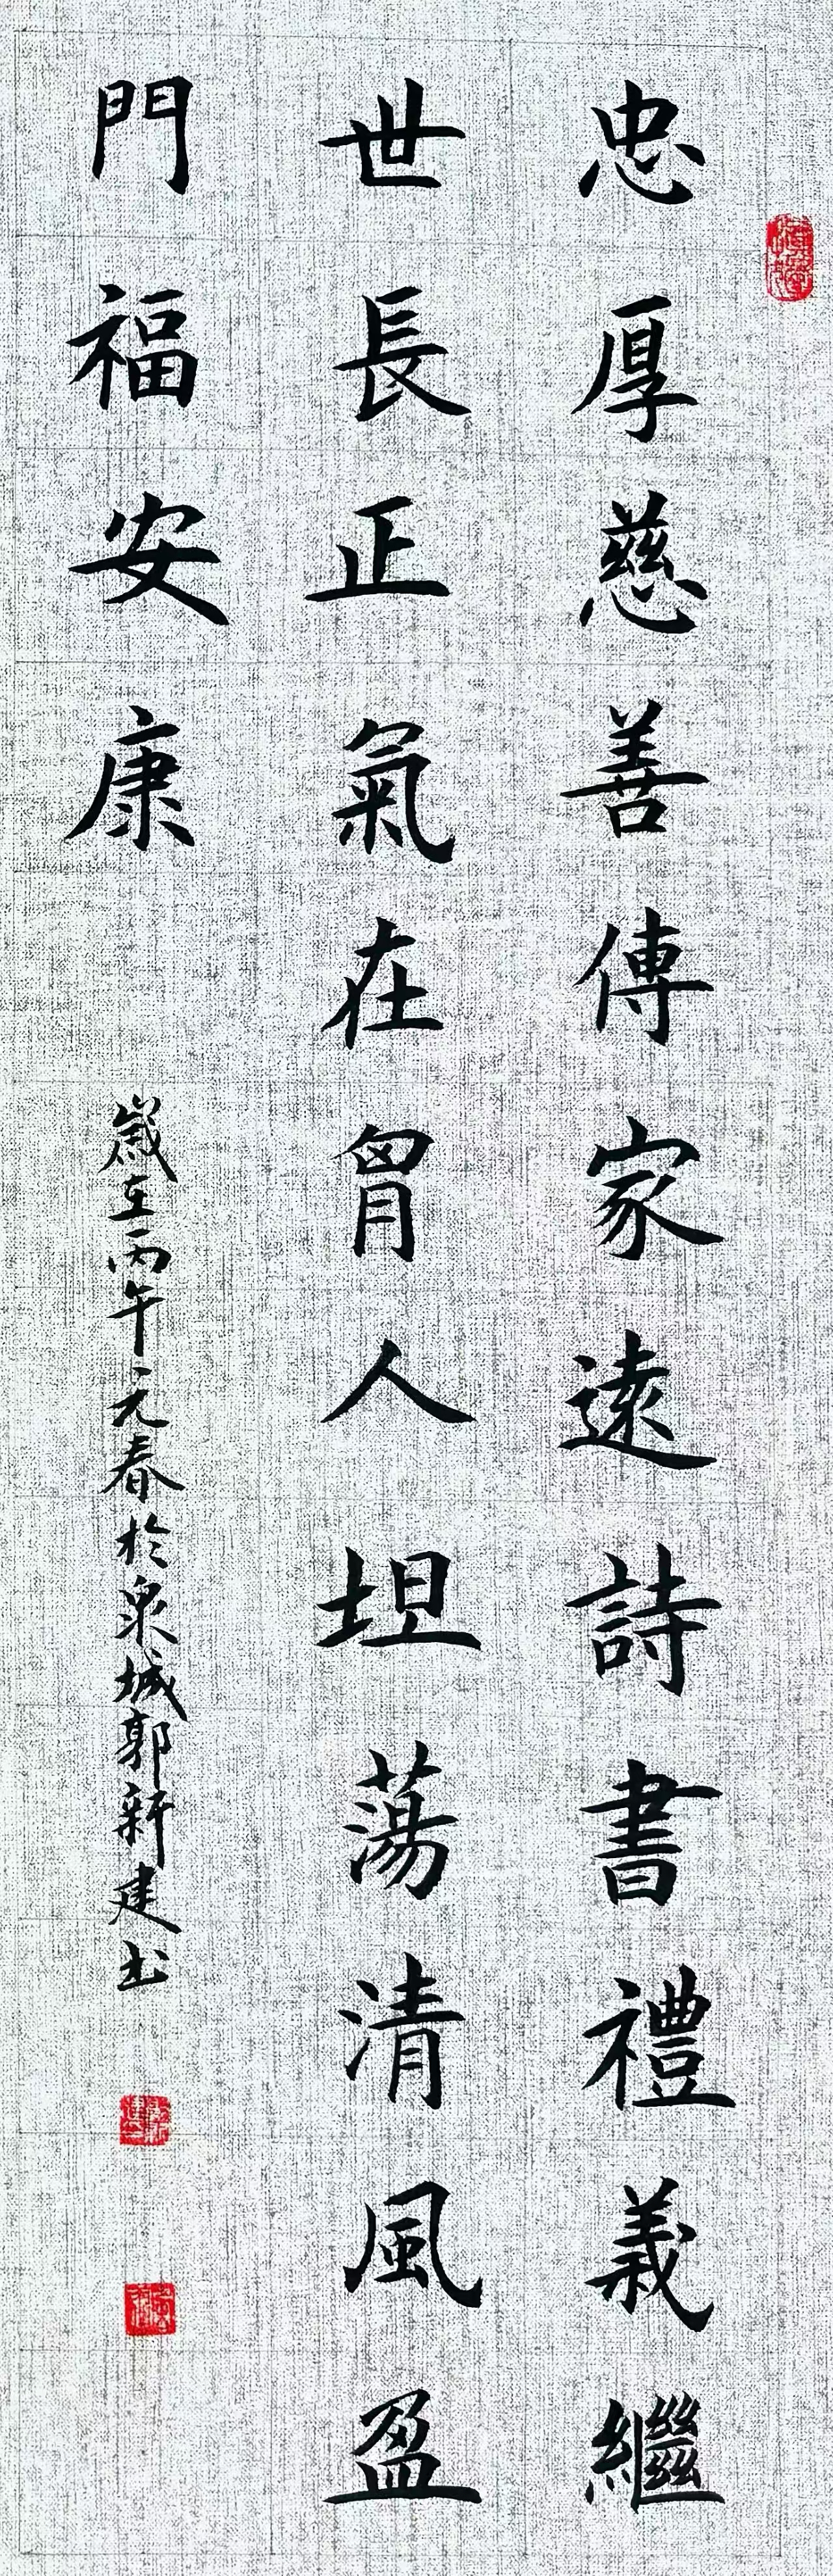 忠厚慈善傳家遠詩書禮義繼
世長正氣在胷人坦蕩清風盈
門福安康
歲在丙午元春於泉城郭新建書